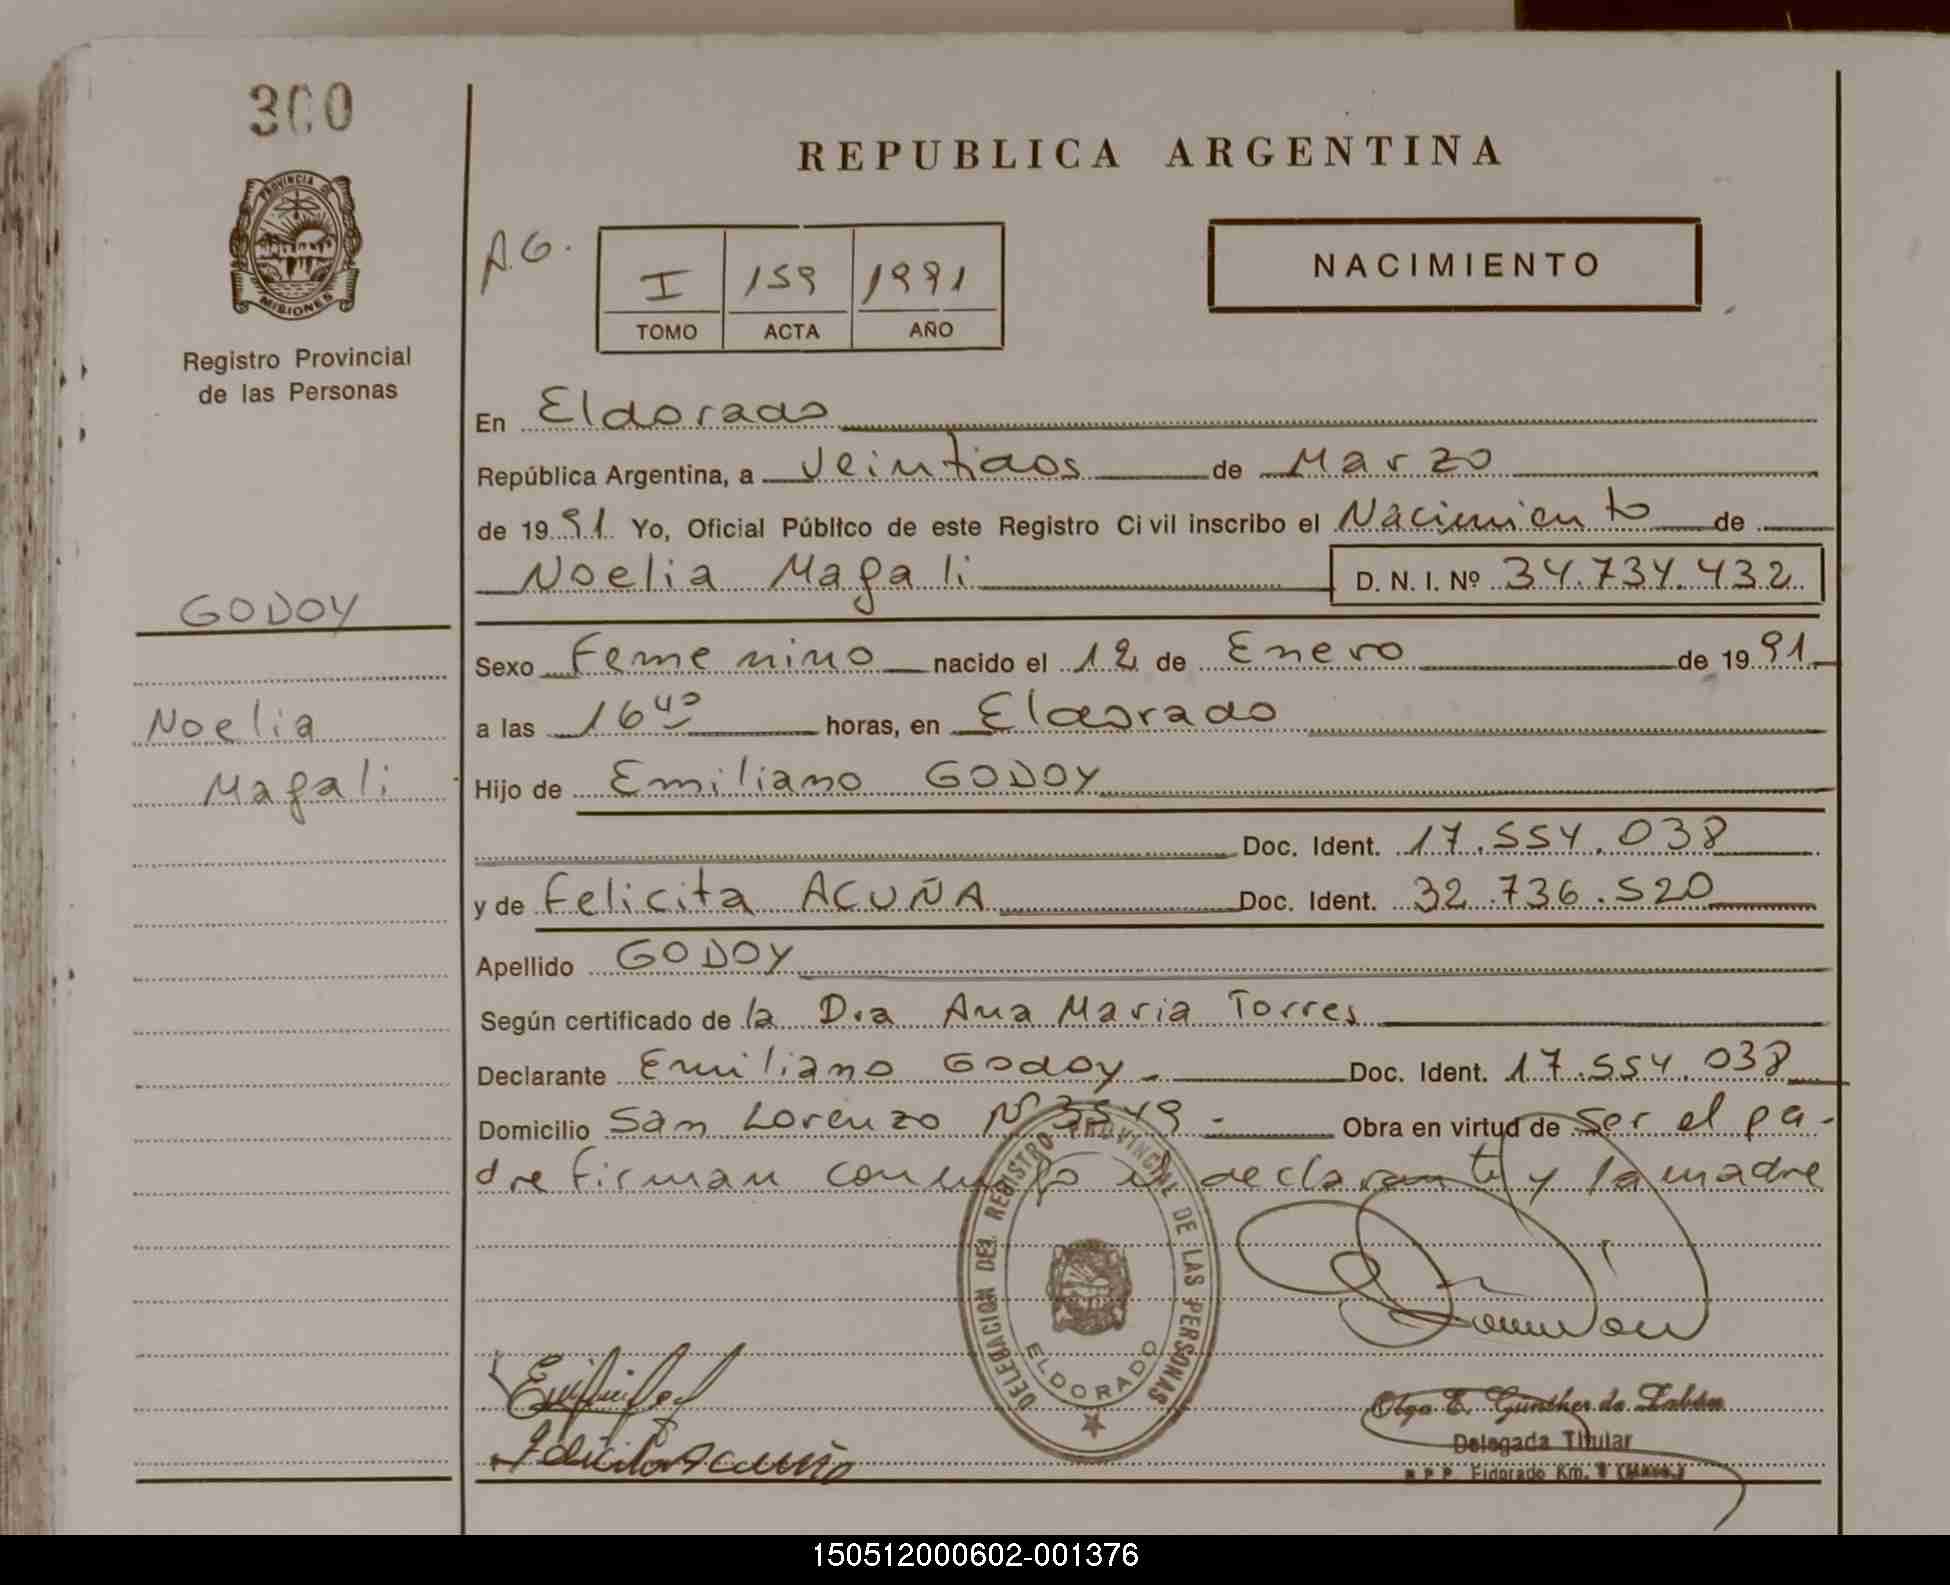 300
PROVINCIA DE
MISIONES
Registro Provincial
de las Personas
REPUBLICA ARGENTINA
A.G.
I 159 1991
TOMO ACTA AÑO
NACIMIENTO
En Eldorado
República Argentina, a Veintidos de Marzo
de 1991 Yo, Oficial Público de este Registro Civil inscribo el Nacimiento de
Noelia Magali D. N. I. Nº 34.734.432
GODOY
Sexo Femenino nacido el 12 de Enero de 1991
Noelia
a las 16 40 horas, en Eldorado
Magali
Hijo de Emiliano GODOY
Doc. Ident. 17.554.038
y de Felicita ACUÑA Doc. Ident. 32.736.520
Apellido GODOY
Según certificado de la Dra Ana Maria Torres
Declarante Emiliano Godoy - Doc. Ident. 17.554.038
Domicilio San Lorenzo Nº 3549 - Obra en virtud de ser el pa-
dre firman conmigo el declarante y la madre
DELEGACION DEL REGISTRO PROVINCIAL DE LAS PERSONAS
ELDORADO
Felicita Acuña
Olga E. Günther de
Delegada Titular
R.P.P. Eldorado Km.
150512000602-001376